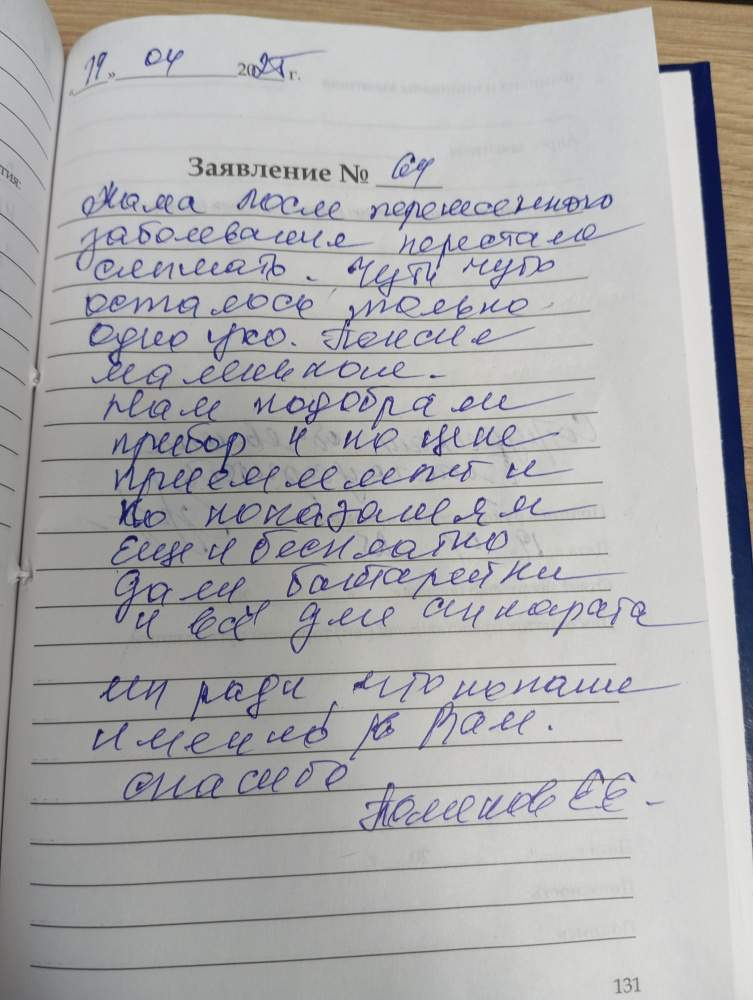 19 » 04 2025 г.
Заявление № 64
Мама после перенесенного
заболевания перестала
слышать. Чуть чуть
осталось только
одно ухо. Пенсия
маленькая.
Нам подобрали
прибор и по цене
приемлемый и
по показаниям
еще и бесплатно
дали батарейки
и всё для аппарата
мы рады, что попали
именно к Вам.
спасибо
Е Е
131